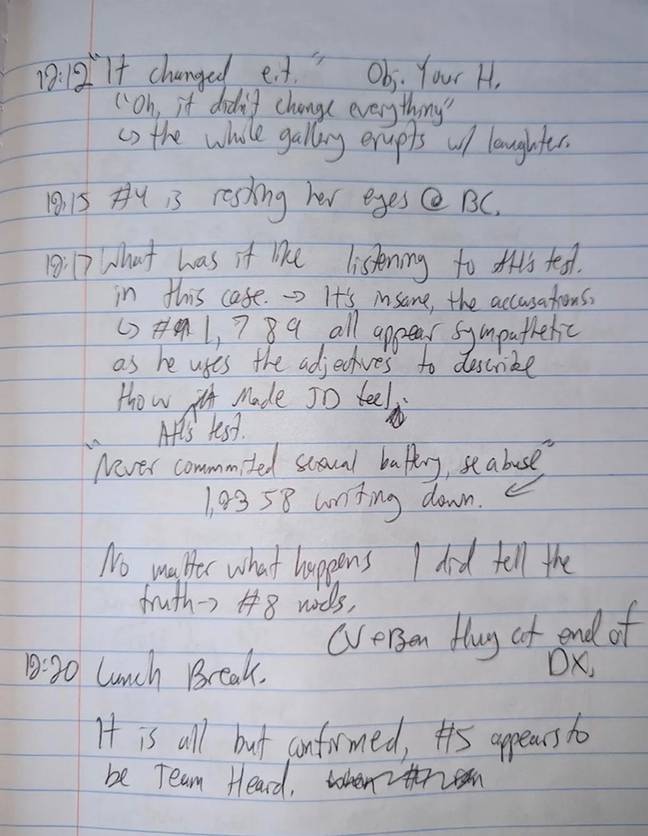 12:12 "It changed e.t." Obj. Your H.
"Oh, it didn't change everything"
↳ the whole gallery erupts w/ laughter.
12:15 #4 is resting her eyes @ BC.
12:17 What was it like listening to AH's test.
in this case. → It's insane, the accusations.
↳ # 1, 7 8 9 all appear sympathetic
as he uses the adjectives to describe
how it made JD feel.
AH's test.
"Never commmited sexual battery, se abuse"
1, 2 3 5 8 writing down. ↙
No matter what happens I did tell the
truth → #8 nods.
CV + Ben Hug at end of
DX.
12:20 Lunch Break.
It is all but confirmed, #5 appears to
be Team Heard.